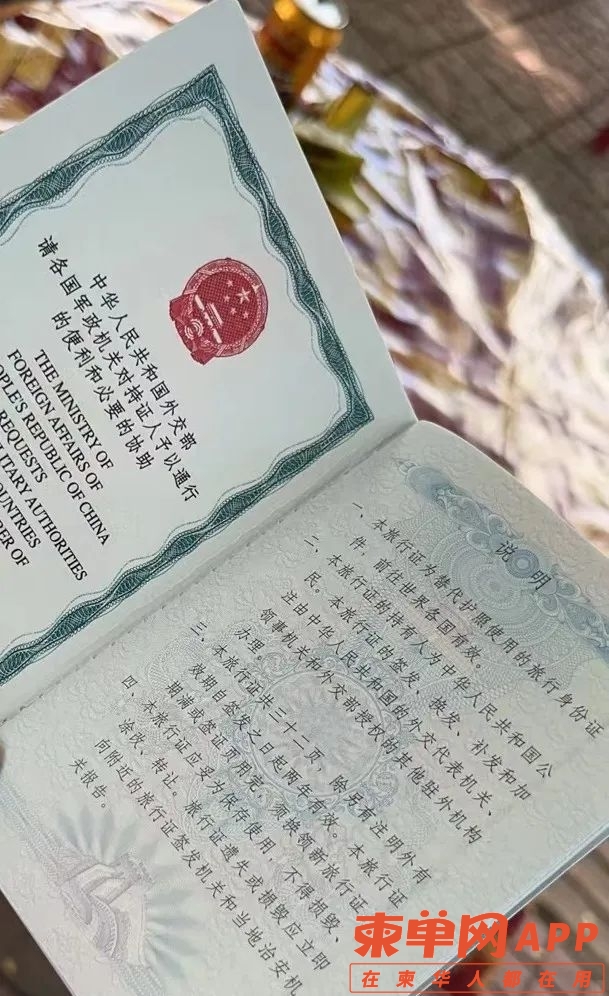 中华人民共和国外交部
请各国军政机关对持证人予以通行
的便利和必要的协助
THE MINISTRY OF
FOREIGN AFFAIRS OF
OPLE'S REPUBLIC OF CHINA
REQUESTS
LITARY AUTHORITIES
OUNTRIES
RER OF
说明
一、本旅行证为替代护照使用的旅行身份证
件，前往世界各国有效。
二、本旅行证的持有人为中华人民共和国公
民。本旅行证的签发、换发、补发和加
注由中华人民共和国的外交代表机关、
领事机关和外交部授权的其他驻外机构
办理。
三、本旅行证共三十二页，除另有注明外有
效期自签发之日起两年有效。本旅行证
期满或签证页用完，须换领新旅行证。
四、本旅行证应妥为保存使用，不得损毁、
涂改、转让。旅行证遗失或损毁应立即
向附近的旅行证签发机关和当地治安机
关报告。
柬单网APP
在柬华人都在用